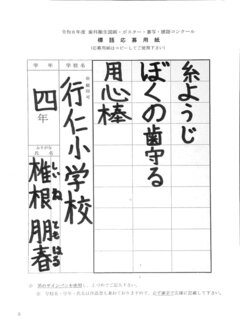 令和6年度 歯科衛生図画・ポスター・書写・標語コンクール
標語応募用紙
(応募用紙はコピーしてご使用下さい)
糸ようじ
ぼくの歯守る
用心棒
学校名
行仁小学校
学年
四年
ふりがな
氏名
しいね
椎根
ともはる
朋春